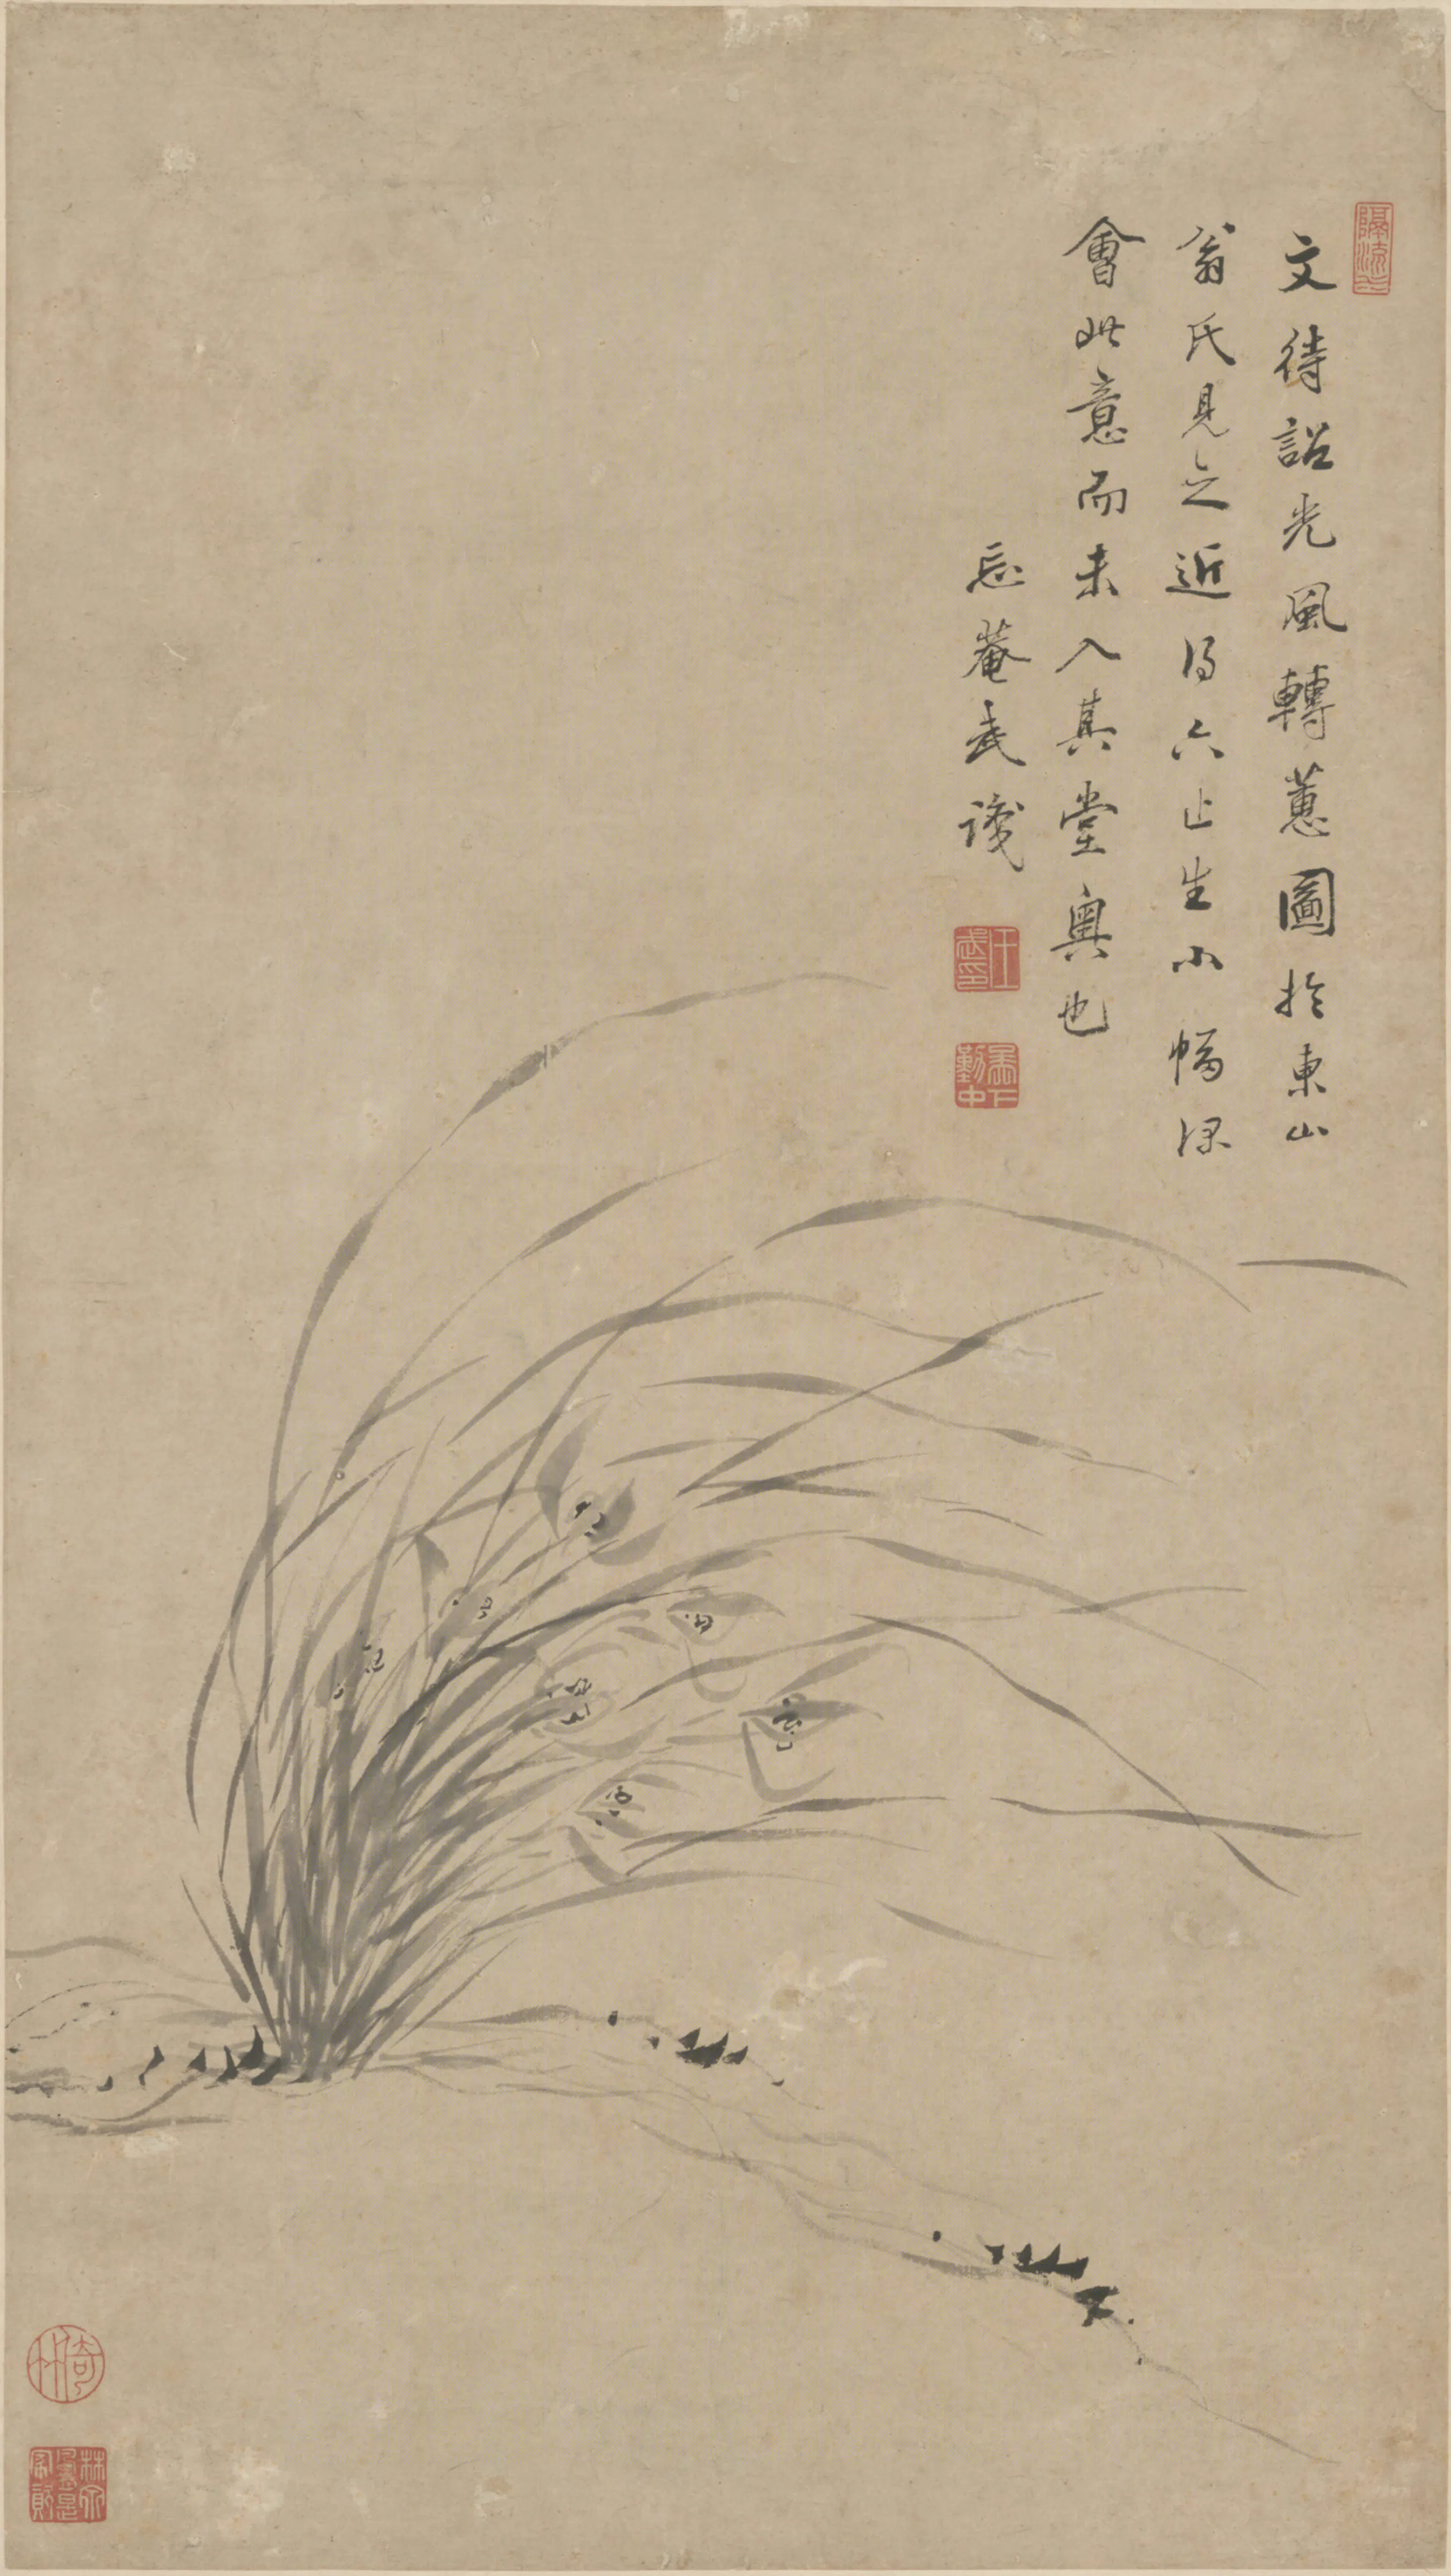 文待詔光風轉蕙圖於東山
翁氏見之近得六止生小幅深
會此意而未入其堂奧也
忘菴武識
王武印